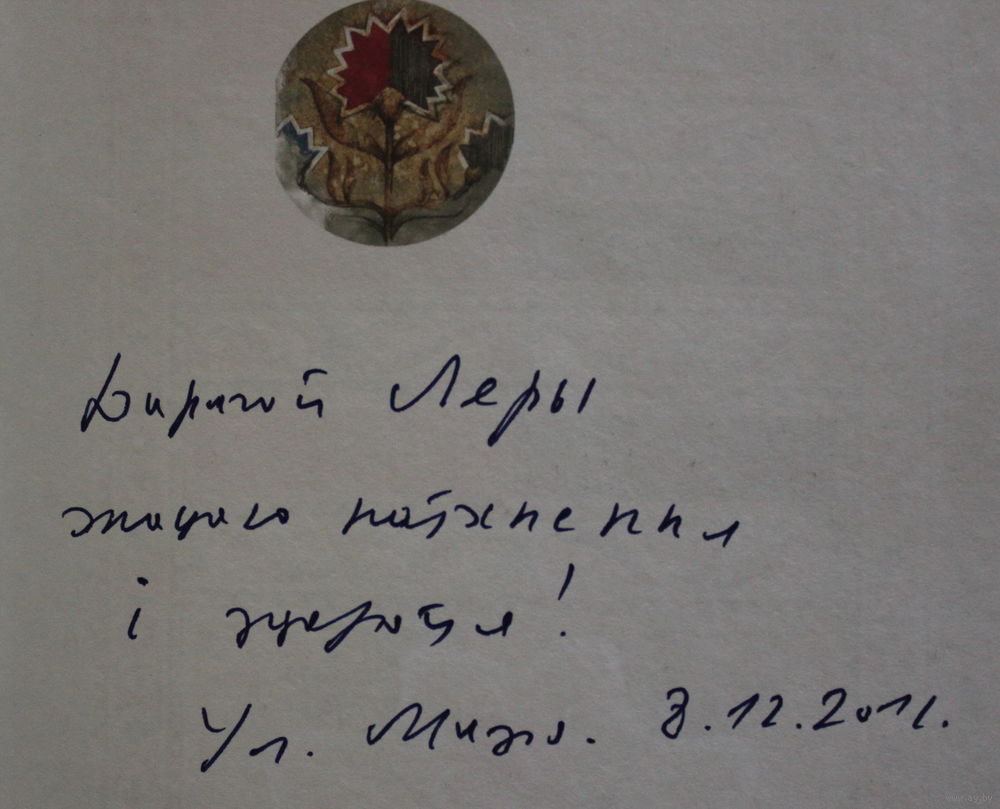 Дарагой Леры
жадаю натхнення
і здароўя!
Ул. 3.12.2011.
www.ay.by